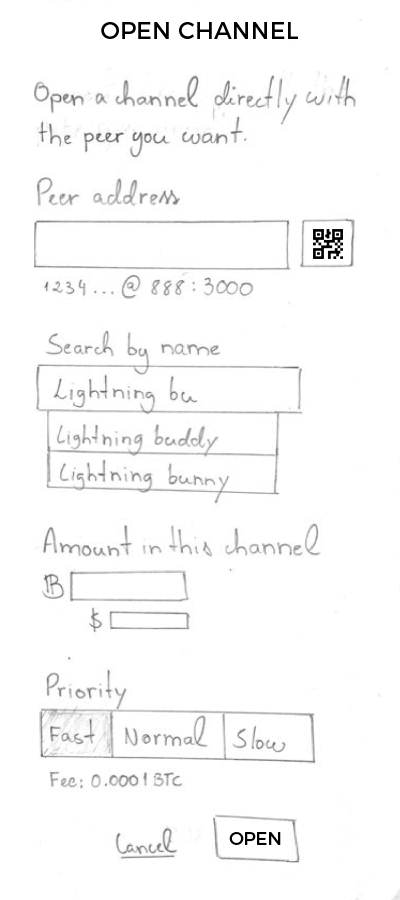 OPEN CHANNEL
Open a channel directly with
the peer you want.
Peer address
1234...@ 888:3000
Search by name
Lightning bu
Lightning buddy
Lightning bunny
Amount in this channel
₿
$
Priority
Fast Normal Slow
Fee: 0.0001 BTC
Cancel OPEN